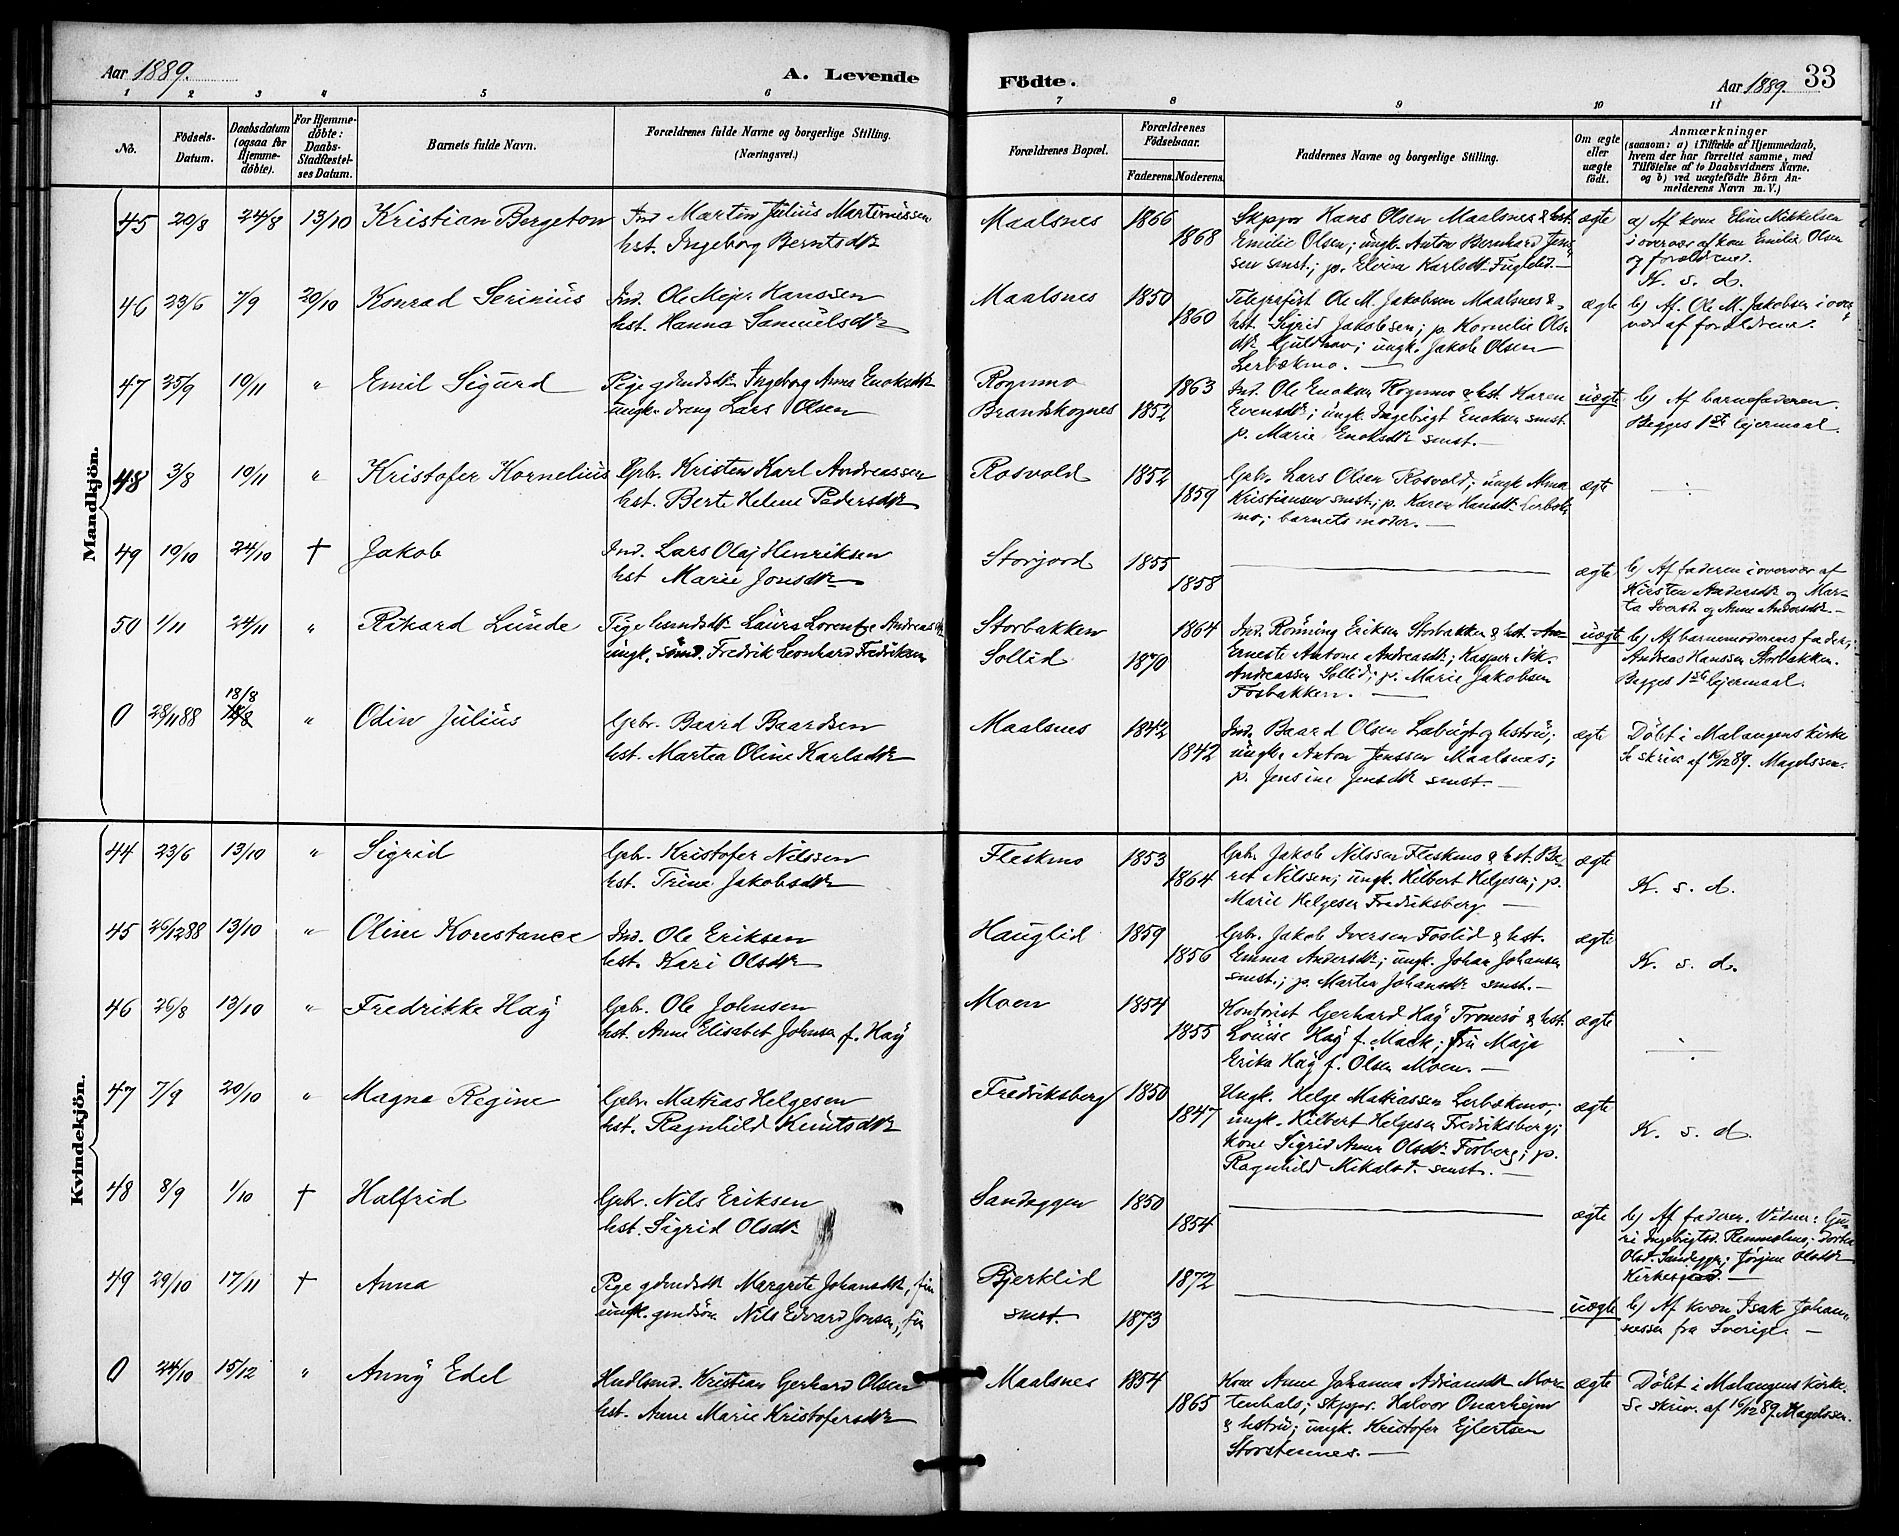 Aar 1889.
A. Levende
1 2 3 4 5 6
No.
Fødsels-Datum.
Daabsdatum (ogsaa for Hjemmedøbte).
For Hjemmedøbte: Daabs-Stadfæstelses Datum.
Barnets fulde Navn.
Forældrenes fulde Navne og borgerlige Stilling.
(Næringsvei.)
Mandkjön.
45 20/8 24/8 13/10 Kristian Bergeton Ind Martin Julius Martinussen
hst. Ingeborg Berntsdtr
46 23/6 7/9 20/10 Konrad Serinius Ind. Ole Mejer Hanssen
hst. Hanna Samuelsdtr
47 25/9 10/11 " Emil Sigurd Pige gdmdsdtr Ingeborg Anna Enoksdtr
ungk. dreng Lars Olsen
48 3/8 10/11 " Kristofer Kornelius Gbr. Kristen Karl Andreassen
hst. Berte Helene Pedersdtr
49 10/10 24/10 † Jakob Ind. Lars Olaj Henriksen
hst Marie Jonsdtr
50 1/11 24/11 " Rikard Lunde Pige husmdsdtr Laura Lorentze Andreasdtr
ungk. Fredrik Leonhard Fredriksen
18/8
0 28/11 88 " Odin Julius Gbr. Baard Baardsen
hst. Martea Oline Karlsdtr
Kvindekjön.
44 23/6 13/10 " Sigrid Gbr. Kristofer Nilssen
hst. Trine Jakobsdtr
45 26/12 88 13/10 " Oline Konstance Ind. Ole Eriksen
hst. Kari Olsdtr
46 26/8 13/10 " Fredrikke Haÿ Gbr. Ole Johnsen
hst. Anne Elisabet Johnsen f. Haÿ
47 7/9 20/10 " Magna Regine Gbr. Mathias Helgesen
hst. Ragnhild Knutsdtr
48 8/9 1/10 † Halfrid Gbr. Nils Eriksen
hst. Sigrid Olsdtr
49 29/10 17/11 † Anna Pige gdmdsdtr Margrete Johansdtr, fin
ungk. gmdsön Nils Edvard Jonsen, fin
0 24/10 15/12 " Anny Edel Hndlsmd. Kristian Gerhard Olsen
hst. Anne Marie Kristofersdtr
Födte.
Aar 1889. 33
7 8 9 10 11
Forældrenes Bopæl.
Forældrenes Fødselsaar.
Faderens. Moderens.
Faddernes Navne og borgerlige Stilling.
Om ægte eller uægte født.
Anmærkninger
(saasom: a) i Tilfælde af Hjemmedaab,
hvem der har forrettet samme, med
Tilføielse af to Daabsvidners Navne,
og b) ved uægtefødte Børn Anmelderens Navn m. V.)
Maalsnes 1866 1868 Skppr Hans Olsen Maalsnes & hst.
Emilie Olsen; ungk. Anton Bernhard Jenssen smst.; p. Elvine Karlsdtr Fuglelid.— ægte
a) Af kone Eline Mikkelsen
i overvær af kone Emilie Olsen
og forældrene.
K. s. d.
Maalsnes 1850 1860 Telegrafist Ole M. Jakobsen Maalsnes &
hst. Sigrid Jakobsen; p. Kornelie Olsdtr Guldhav; ungk. Jakob Olsen
Lerbækmo. — ægte
b) Af. Ole M. Jakobsen i overvær af forældrene.
Rognmo
Brandskognes 1852 1863 Ind. Ole Enoksen Rognmo & hst. Karen
Evensdtr; ungk. Ingebrigt Enoksen smst.
p. Marie Enoksdtr smst.— uægte
b) Af barnefaderen.
Begges 1ste lejermaal.
Rosvold 1852 1859 Gbr. Lars Olsen Rosvold; ungk
Kristiansen smst.; p. Karen Hansdtr Lerbekmo; barnets moder.— ægte
Storjord 1855 1858 ægte
b) Af faderen i overvær af
Kirsten Andersdtr og Marta Iversd og Anne Andersdtr.—
Storbakken
Sollid 1870 1864 Ind. Rönning Eriksen Storbakken & hst.
Erneste Antone Andreasdtr; Kasper Nik.
Andreassen Sollid; p. Marie Jakobsen
Fosbakken. — uægte
b) Af barnemoderens fader,
Andreas Hanssen Storbakken.
Begges 1ste lejermaal.
Maalsnes 1842 1842 Ind. Baard Olsen Læbugt og hstru;
ungk. Anton Jenssen Maalsnes;
p. Jensine Jensdtr smst.— ægte
Döbt i Malangens kirke
Se skriv. af 16/12 89. Magelssen.
Fleskmo 1853 1864 Gbr Jakob Nilssen Fleskmo & hst. Beret Nilssen; ungk. Hilbert Helgesen; p.
Marie Helgesen Fredriksberg — ægte K. s. d.
Hauglid 1859 1856 Gbr. Jakob Iversen Foslid & hst.
Emma Andersdtr; ungk. Johan Johansen
smst.; p. Martea Johansdtr smst.— ægte K. s. d.
Moen 1854 1855 Kontorist Gerhard Haÿ Tromsø & hst.
Louise Haÿ f. Mack; fru Maja
Erika Haÿ f. Olsen Moen.— ægte
Fredriksberg 1850 1847 Ungk. Helge Matiassen Lerbækmo;
ungk. Hilbert Helgesen Fredriksberg;
kone Sigrid Anna Olsdtr Fosberg; p.
Ragnhild Mikalsdtr smst.— ægte K. s. d.
Sandeggen 1850 1854 ægte
b) Af faderen. Vidner: Guri Ingebrigtsd. Remmolmo; Dortea
Olsd. Sandeggen; Jörgine Olsdtr
Kirkesjord.—
Bjerklid
smst. 1873 1872 uægte
b) Af kvæn Isak Johannessen fra Sverige.—
Maalsnes 1854 1865 Kone Anne Johanna Adriansdtr Mortenhals; skppr. Halvor Onarheim
& hstru; ungk. Kristofer Ejlertsen
Storstennes.— ægte
Döbt i Malangens kirke.
Se skriv. af 16/12 89. Magelssen.